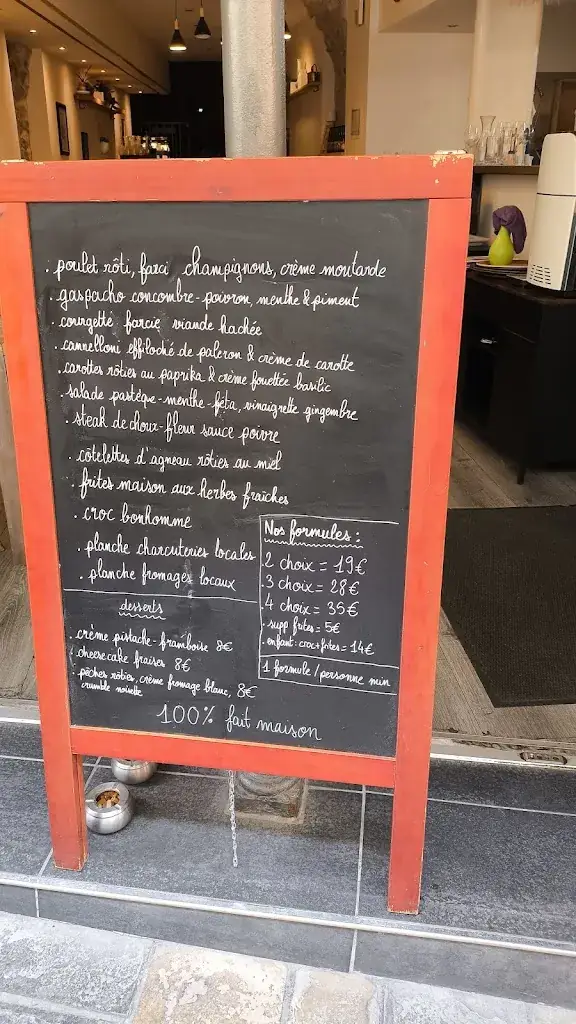 . poulet rôti, farci champignons, crème moutarde
. gaspacho concombre-poivron, menthe & piment
. courgette farcie viande hachée
. cannelloni effiloché de paleron & crème de carotte
. carottes rôties au paprika & crème fouettée basilic
. salade pastèque-menthe-féta, vinaigrette gingembre
. steak de chou-fleur sauce poivre
. côtelettes d'agneau rôties au miel
. frites maison aux herbes fraîches
. croc bonhomme
. planche charcuteries locales
. planche fromages locaux
Nos formules :
2 choix = 19€
3 choix = 28€
4 choix = 35€
. supp frites = 5€
. enfant: croc+frites = 14€
1 formule/personne min
desserts
. crème pistache-framboise 8€
. cheesecake fraises 8€
. pêches rôties, crème fromage blanc, 8€
crumble noisette
100% fait maison